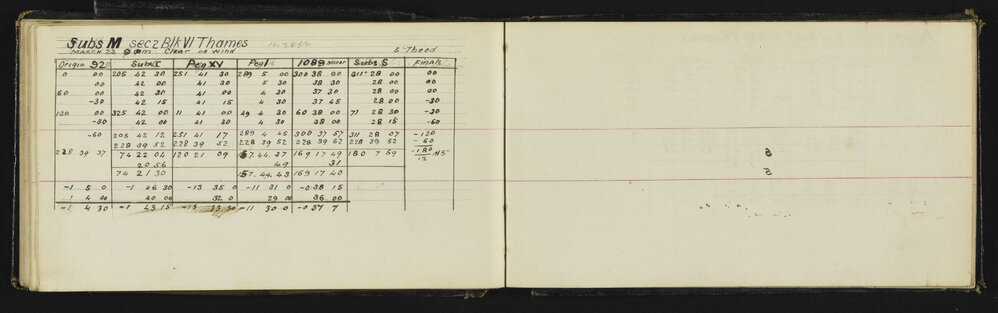 Subs M sec 2 Blk VI Thames
MARCH 23 9 am Clear no wind 5" Theod
Origin 92 Subs X Peg XV Peg 1 1089 Minor Subs S Finals
0 00 205 42 30 251 41 30 289 5 00 300 38 00 311° 28 00 00
00 42 00 41 30 5 30 38 30 28 00 00
60 00 42 30 41 00 4 30 37 30 28 00 00
-30 42 15 41 15 4 30 37 45 28 00 -30
120 00 325 42 00 11 41 00 49 4 30 60 38 00 71 28 30 -30
-30 42 00 41 30 4 30 38 00 28 15 -60
-60 205 42 12 251 41 17 289 4 45 300 37 57 311 28 07 -120
228 39 52 228 39 52 228 39 52 228 39 52 228 39 52 -60
228 39 37 74 22 04 120 21 09 157. 44. 37 169 17 49 180 7 59 -180
20 56 49 31 12
74 21 30 157. 44. 43 169 17 40
-1 5 0 -1 46 30 -13 35 0 -11 31 0 -0 38 15
1 4 00 40 00 32 0 29 00 36 00
-1 4 30 -1 43 15 -13 33 30 -11 30 0 -0 37 7
5
5